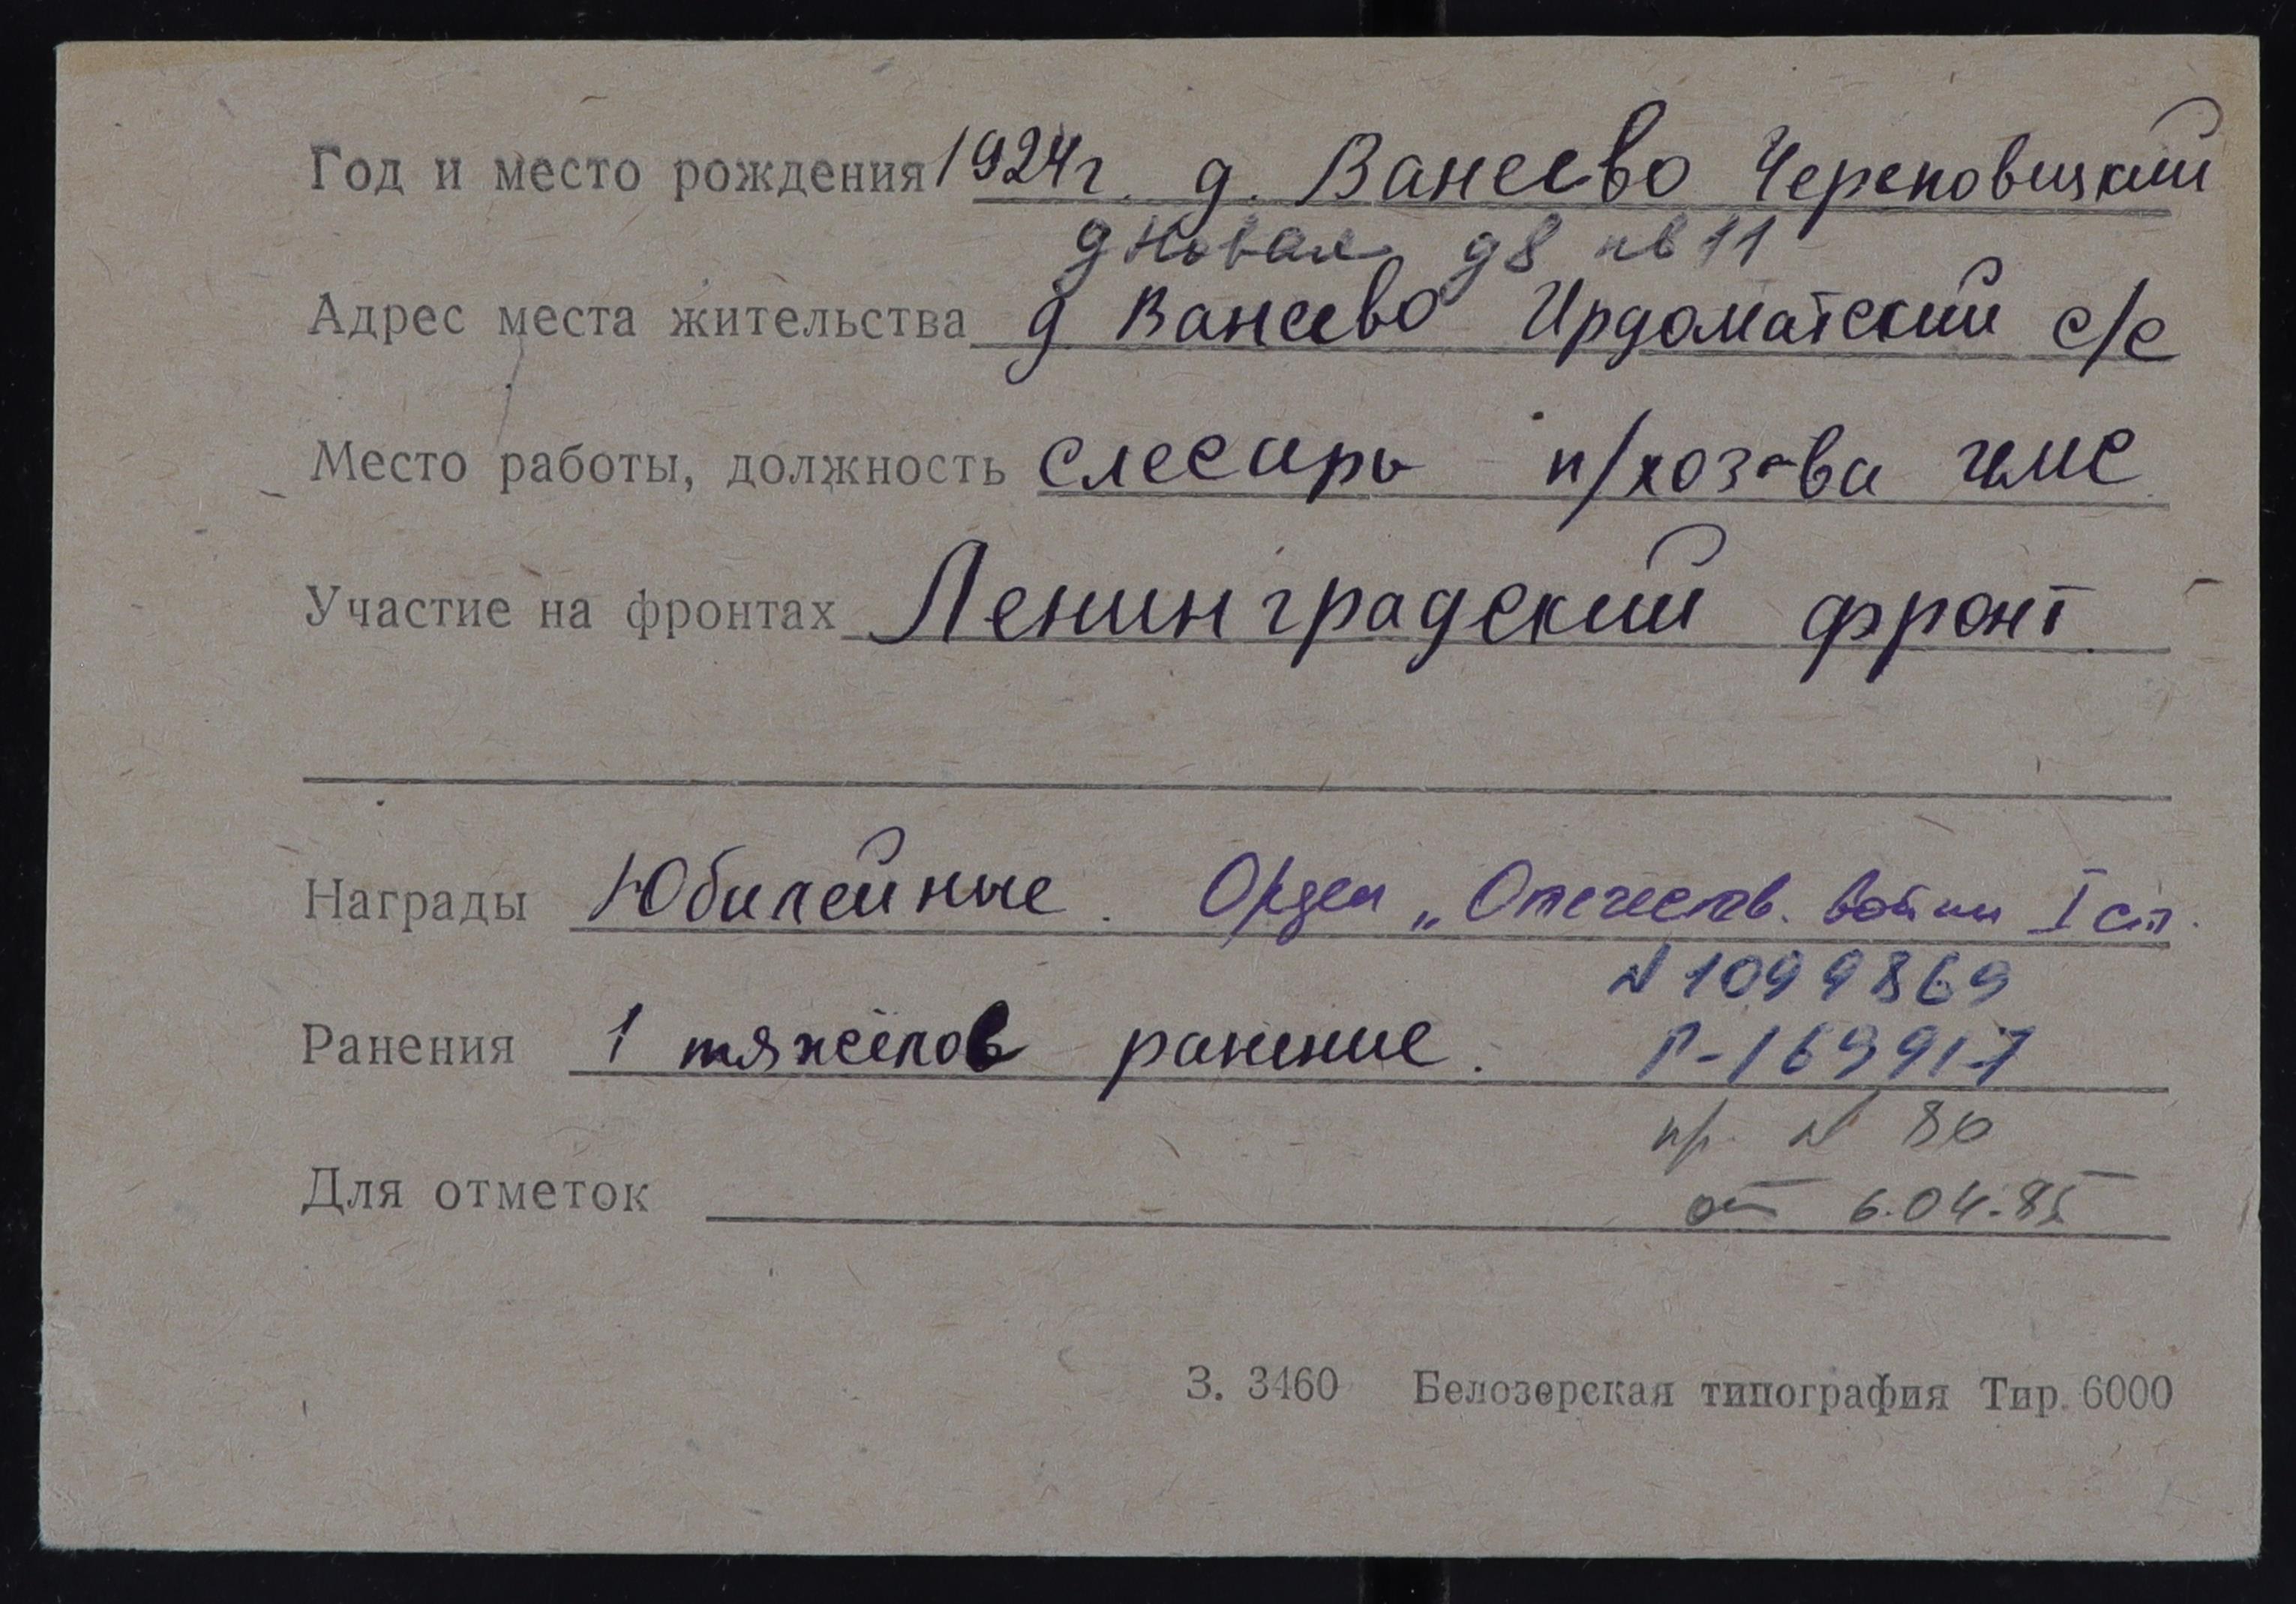 Год и место рождения 1924г. д. Ванеево Череповецкий
д Новая д 8 кв 11
Адрес места жительства д Ванеево Ирдоматский с/с
Место работы, должность слесарь п/хоз-ва чмс
Участие на фронтах Ленинградский фронт
Награды Юбилейные. Орден „Отечеств. войны I ст.
N 1099869
Ранения 1 тяжёлое ранение. Г-169917
пр. N 80
Для отметок от 6.04.85
З. 3460 Белозерская типография Тир. 6000